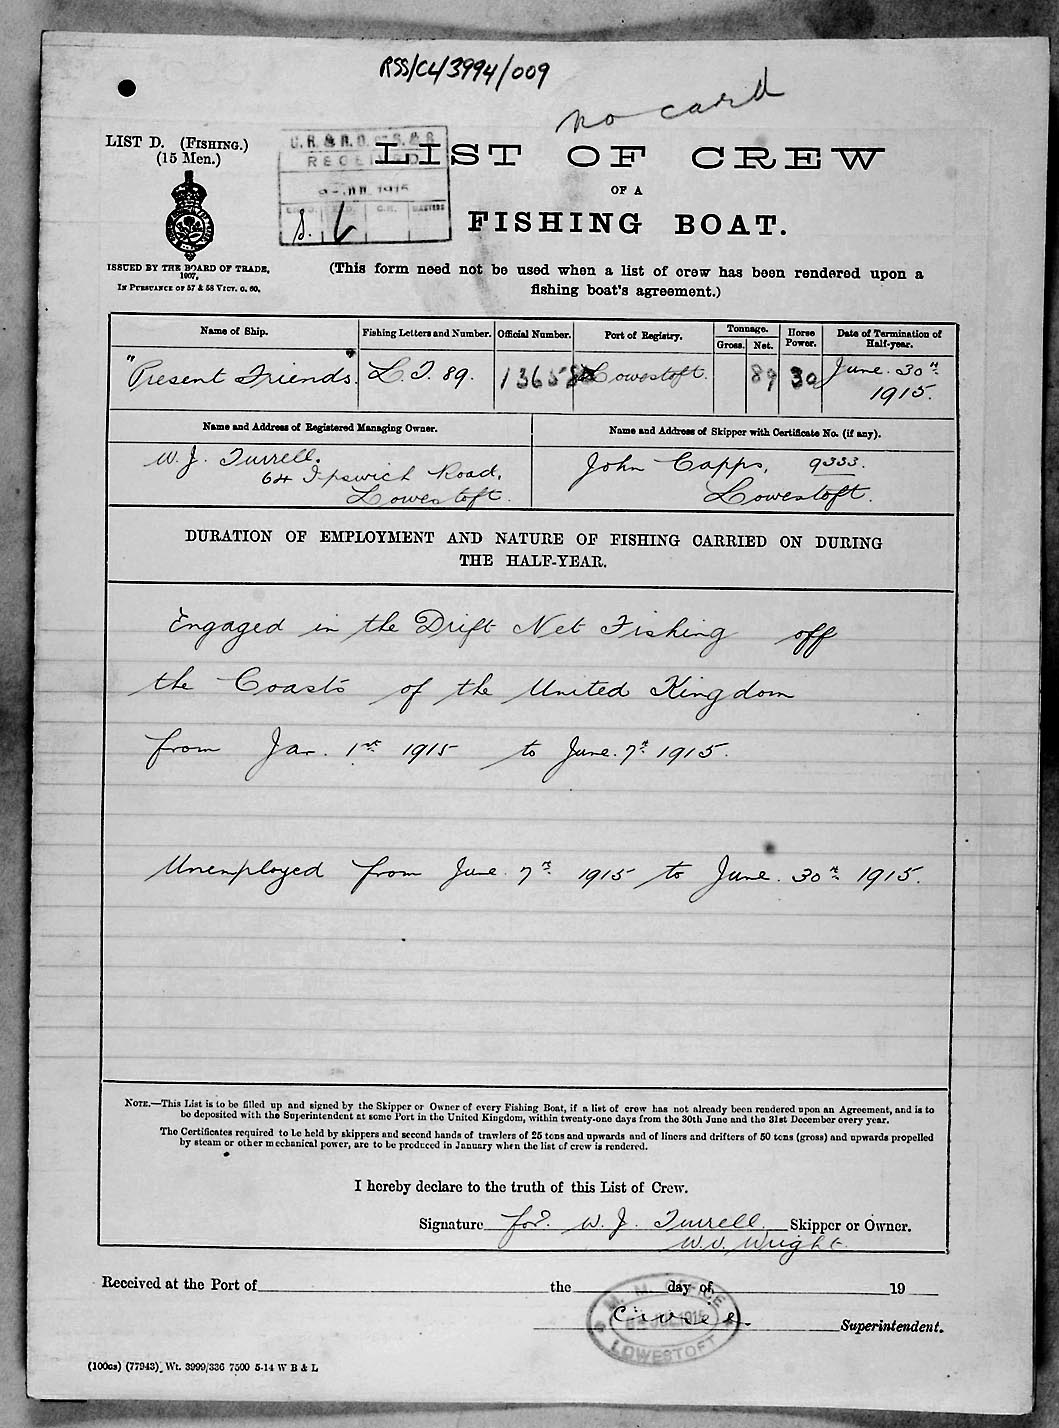 RSS/CL/3994/009
no card
LIST D. (FISHING.)
(15 Men.)
RECEIVED
LIST OF CREW
OF A
FISHING BOAT.
ISSUED BY THE BOARD OF TRADE,
1907,
IN PURSUANCE OF 57 & 58 VICT. C. 60.
(This form need not be used when a list of crew has been rendered upon a
fishing boat's agreement.)
Name of Ship. Fishing Letters and Number. Official Number. Port of Registry. Tonnage. Horse Power. Date of Termination of Half-year.
Gross. Net.
"Present Friends." L.T. 89. 13658 Lowestoft. 89 30 June. 30th 1915.
Name and Address of Registered Managing Owner. Name and Address of Skipper with Certificate No. (if any).
W. J. Turrell. John Capps, 9333.
64 Ipswich Road,
Lowestoft. Lowestoft.
DURATION OF EMPLOYMENT AND NATURE OF FISHING CARRIED ON DURING
THE HALF-YEAR.
Engaged in the Drift Net Fishing off
the Coasts of the United Kingdom
from Jan. 1st 1915 to June. 7th 1915.
Unemployed from June. 7th 1915 to June. 30th 1915.
NOTE.—This List is to be filled up and signed by the Skipper or Owner of every Fishing Boat, if a list of crew has not already been rendered upon an Agreement, and is to
be deposited with the Superintendent at some Port in the United Kingdom, within twenty-one days from the 30th June and the 31st December every year.
The Certificates required to be held by skippers and second hands of trawlers of 25 tons and upwards and of liners and drifters of 50 tons (gross) and upwards propelled
by steam or other mechanical power, are to be produced in January when the list of crew is rendered.
I hereby declare to the truth of this List of Crew.
Signature for W. J. Turrell. Skipper or Owner.
W. V. Wright.
Received at the Port of the day of 19
M. M. OFFICE
LOWESTOFT
Superintendent.
(100cs) (77943). Wt. 3999/336 7500 5-14 W B & L